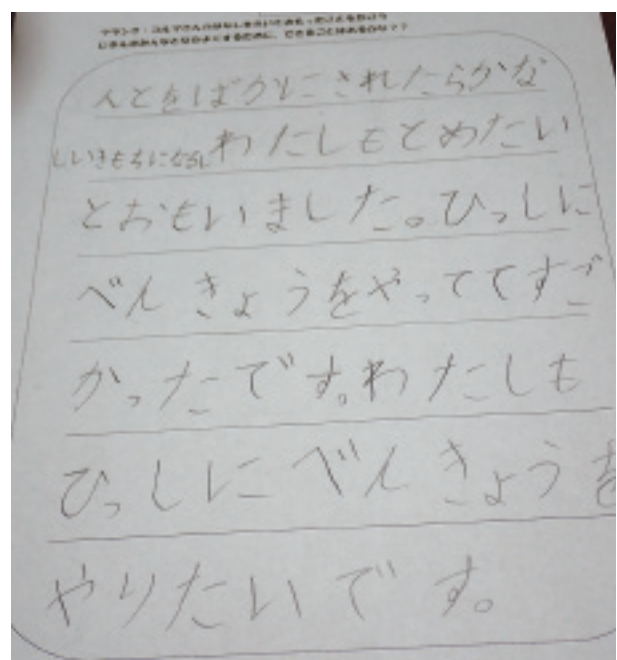 人とをばかにされたらかな
しいきもちになるしわたしもとめたい
とおもいました。ひっしに
べんきょうをやっててすご
かったです。わたしも
ひっしにべんきょうを
やりたいです。